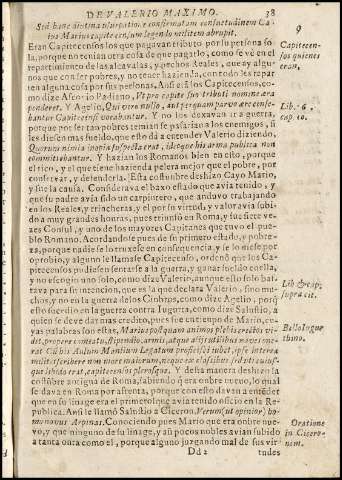 DE VALERIO MAXIMO. 38
Sed hanc diutina usurpatione confirmatam consuetudinem Ca
ius Marius capite censum legendo militem abrupit.
Eran Capitecensos los que pagavan tributo por su persona so
la, porque no tenian otra cosa de que pagarlo, como se vè en el
repartimiento de las alcavalas, y pechos Reales, que ay algu-
nos que con ser pobres, y no tener hazienda, con todo les repar
ten alguna cosa por sus personas. Assi eran los Capitecensos, co-
mo dize Asconio Pediano, Pro capite suo tributi nomine æra
penderet. Y Agelio, Qui vero nullo, aut perquam parvo ære cense-
bantur Capitecensi vocabantur. Y no los dexavan ir a guerra,
porque por ser tan pobres temian se passarian a los enemigos, si
les diessen mas sueldo, que esto dà a entender Valerio diziendo,
Quorum nimia inopia suspecta erat, ideoque his arma publica non
committebantur. Y hazian los Romanos bien en esto, porque
el rico, y el que tiene hazienda pelea mejor que el pobre, por
conservar, y defenderla. Esta costumbre deshizo Cayo Mario,
y fue la causa. Considerava el baxo estado que avia tenido, y
que su padre avia sido un carpintero, que anduvo trabajando
en los Reales, y trincheras, y el por su virtud, y valor avia subi-
do a muy grandes honras, pues triunfò en Roma, y fue siete ve-
zes Consul, y uno de los mayores Capitanes que tuvo el pue-
blo Romano. Acordandose pues de su primero estado, y pobre-
za, porque nadie se la truxesse en consequencia, y se lo diesse por
oprobio, y alguno le llamasse Capitecenso, ordenò que los Ca-
pitecensos pudiessen sentarse a la guerra, y ganar sueldo en ella,
y no escogio uno solo, como dize Valerio, aunque esto solo bas-
tava para su intencion, que es la que declara Valerio, sino mu-
chos, y no en la guerra de los Cimbros, como dize Agelio, porq̃
esto sucedio en la guerra contra Iugurta, como dize Salustio, a
quien se deve dar mas credito, pues fue en tiempo de Mario, cu-
yas palabras son estas, Marius postquam animos plebis erectos vi-
det, propere commeatu, stipendio, armis, atque aliis utilibus naves one-
rat. Cũ his Aulum Manlium Legatum proficisci iubet, ipse interea
milites scribere non more maiorum, neque ex classibus, sed uti cuius-
que libido erat, capite censos plerosque. Y desta manera deshizo la
costũbre antigua de Roma, sabiendo q̃ era onbre nuevo, lo qual
se dava en Roma por afrenta, porque con esto davan a entẽder
que en su linage era el primero q̃ avia tenido oficio en la Re-
publica. Ansi le llamò Salustio a Ciceron, Verum (ut opinor) ho-
mo novus Arpinas. Conociendo pues Mario que era onbre nue-
vo, y que ninguno de su linage, y aũ pocos nobles avian subido
a tanta onra como el, porque alguno juzgando mal de sus vir
Dd 2 tudes
9
Capitecen-
sos quienes
eran.
Lib. 6.
cap. 10.
Lib. & cap.
supra cit.
Bello Iugur
thino.
Oratione
in Cicero-
nem.